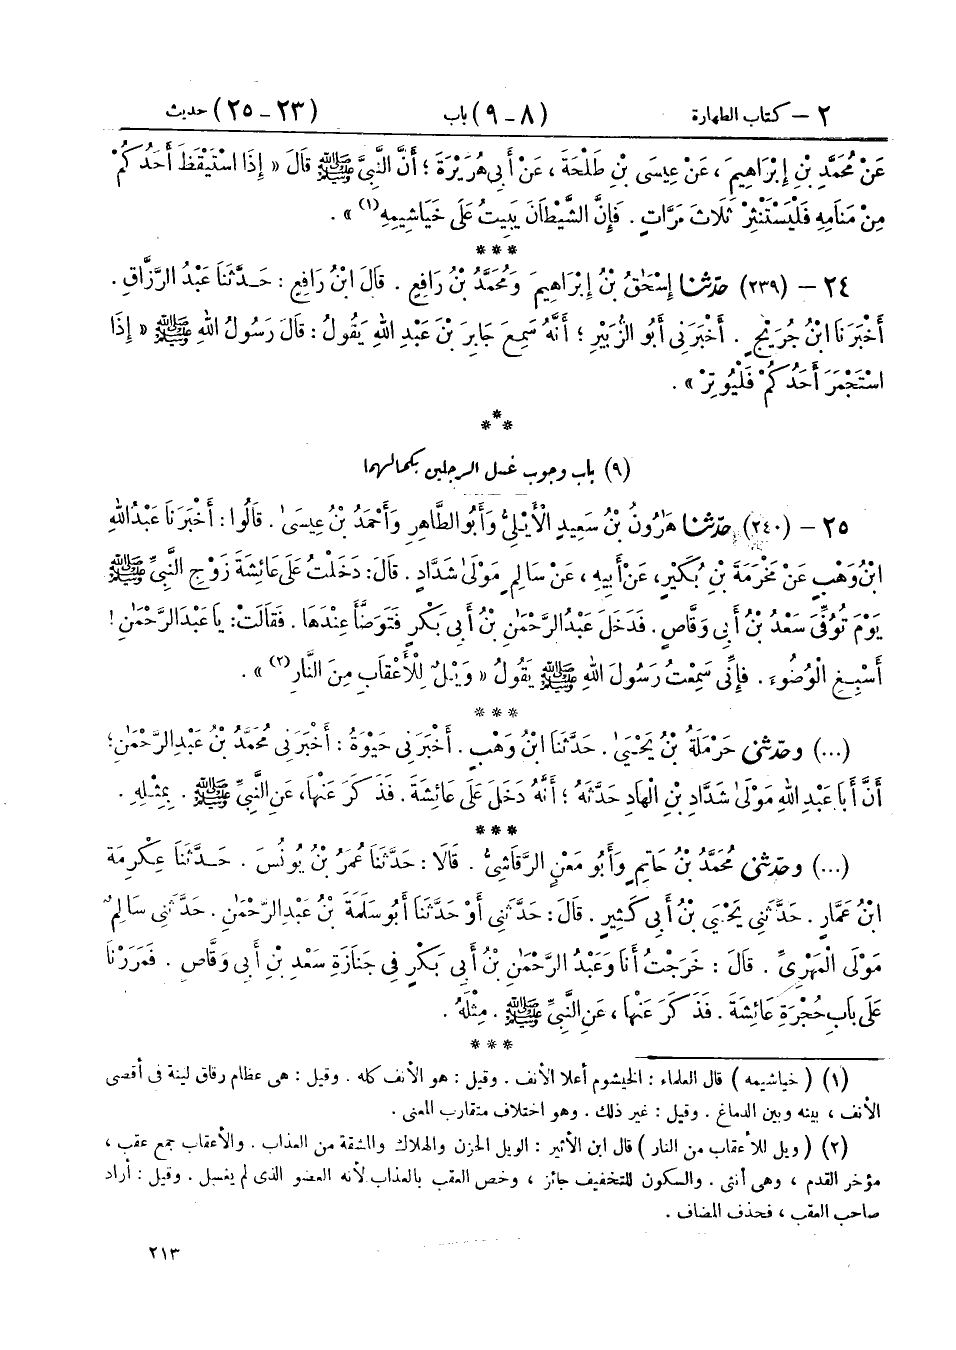 ٢ – كتاب الطهارة (٨ – ٩) باب (٢٣ – ٢٥) حديث
عَنْ مُحَمَّدِ بْنِ إِبْرَاهِيمَ، عَنْ عِيسَى بْنِ طَلْحَةَ، عَنْ أَبِي هُرَيْرَةَ؛ أَنَّ النَّبِيَّ ﷺ قَالَ « إِذَا اسْتَيْقَظَ أَحَدُكُمْ
مِنْ مَنَامِهِ فَلْيَسْتَنْثِرْ ثَلَاثَ مَرَّاتٍ . فَإِنَّ الشَّيْطَانَ يَبِيتُ عَلَى خَيَاشِيمِهِ(١) » .
***
٢٤ – (٢٣٩) حَدَّثَنَا إِسْحَٰقُ بْنُ إِبْرَاهِيمَ وَمُحَمَّدُ بْنُ رَافِعٍ . قَالَ ابْنُ رَافِعٍ : حَدَّثَنَا عَبْدُ الرَّزَّاقِ .
أَخْبَرَنَا ابْنُ جُرَيْجٍ . أَخْبَرَنِي أَبُو الزُّبَيْرِ ؛ أَنَّهُ سَمِعَ جَابِرَ بْنَ عَبْدِ اللهِ يَقُولُ : قَالَ رَسُولُ اللهِ ﷺ « إِذَا
اسْتَجْمَرَ أَحَدُكُمْ فَلْيُوتِرْ » .
***
(٩) باب وجوب غسل الرجلين بكمالهما
٢٥ – (٢٤٠) حَدَّثَنَا هَٰرُونُ بْنُ سَعِيدٍ الْأَيْلِيُّ وَأَبُو الطَّاهِرِ وَأَحْمَدُ بْنُ عِيسَىٰ . قَالُوا : أَخْبَرَنَا عَبْدُ اللهِ
ابْنُ وَهْبٍ عَنْ مَخْرَمَةَ بْنِ بُكَيْرٍ، عَنْ أَبِيهِ، عَنْ سَالِمٍ مَوْلَىٰ شَدَّادٍ . قَالَ : دَخَلْتُ عَلَى عَائِشَةَ زَوْجِ النَّبِيِّ ﷺ
يَوْمَ تُوُفِّيَ سَعْدُ بْنُ أَبِي وَقَّاصٍ . فَدَخَلَ عَبْدُ الرَّحْمَٰنِ بْنُ أَبِي بَكْرٍ فَتَوَضَّأَ عِنْدَهَا . فَقَالَتْ : يَا عَبْدَ الرَّحْمَٰنِ !
أَسْبِغِ الْوُضُوءَ . فَإِنِّي سَمِعْتُ رَسُولَ اللهِ ﷺ يَقُولُ « وَيْلٌ لِلْأَعْقَابِ مِنَ النَّارِ(٢) » .
***
(...) وَحَدَّثَنِي حَرْمَلَةُ بْنُ يَحْيَىٰ . حَدَّثَنَا ابْنُ وَهْبٍ . أَخْبَرَنِي حَيْوَةُ : أَخْبَرَنِي مُحَمَّدُ بْنُ عَبْدِ الرَّحْمَٰنِ ؛
أَنَّ أَبَا عَبْدِ اللهِ مَوْلَىٰ شَدَّادِ بْنِ الْهَادِ حَدَّثَهُ ؛ أَنَّهُ دَخَلَ عَلَى عَائِشَةَ . فَذَكَرَ عَنْهَا، عَنِ النَّبِيِّ ﷺ . بِمِثْلِهِ .
***
(...) وَحَدَّثَنِي مُحَمَّدُ بْنُ حَاتِمٍ وَأَبُو مَعْنٍ الرَّقَاشِيُّ . قَالَا : حَدَّثَنَا عُمَرُ بْنُ يُونُسَ . حَدَّثَنَا عِكْرِمَةُ
ابْنُ عَمَّارٍ . حَدَّثَنِي يَحْيَى بْنُ أَبِي كَثِيرٍ . قَالَ : حَدَّثَنِي أَوْ حَدَّثَنَا أَبُو سَلَمَةَ بْنُ عَبْدِ الرَّحْمَٰنِ . حَدَّثَنِي سَالِمٌ
مَوْلَى الْمَهْرِيِّ . قَالَ : خَرَجْتُ أَنَا وَعَبْدُ الرَّحْمَٰنِ بْنُ أَبِي بَكْرٍ فِي جَنَازَةِ سَعْدِ بْنِ أَبِي وَقَّاصٍ . فَمَرَرْنَا
عَلَى بَابِ حُجْرَةِ عَائِشَةَ . فَذَكَرَ عَنْهَا، عَنِ النَّبِيِّ ﷺ . مِثْلَهُ .
***
(١) ( خياشيمه ) قال العلماء : الخيشوم أعلا الأنف . وقيل : هو الأنف كله . وقيل : هى عظام رقاق لينة فى أقصى
الأنف ، بينه وبين الدماغ . وقيل : غير ذلك . وهو اختلاف متقارب المعنى .
(٢) ( ويل للأعقاب من النار ) قال ابن الأثير : الويل الحزن والهلاك والمشقة من العذاب . والأعقاب جمع عقب ،
مؤخر القدم ، وهى أنثى . والسكون للتخفيف جائز ، وخص العقب بالعذاب لأنه العضو الذى لم يغسل . وقيل : أراد
صاحب العقب ، فحذف المضاف .
٢١٣